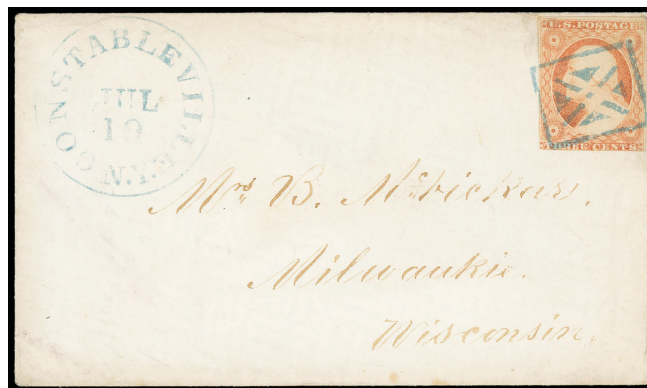 CONSTABLEVILLE N.Y.
JUL
19
U.S. POSTAGE
THREE CENTS
Mrs B. McVickar.
Milwaukie.
Wisconsin.